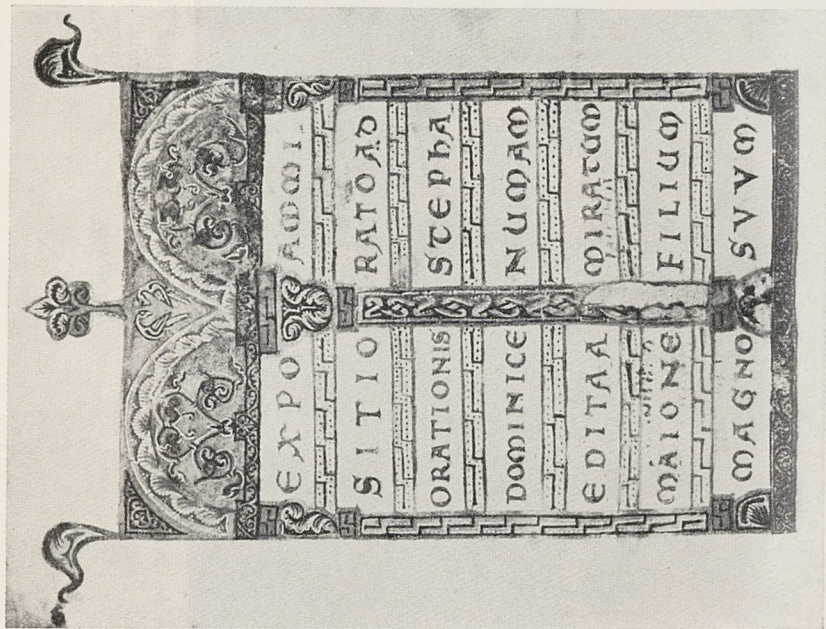 EXPO
SITIO
ORATIONIS
DOMINICE
EDITAA
MAIONE
MAGNO
AMMI
RATO AD
STEPHA
NUMAM
MIRATUM
FILIUM
SVVM